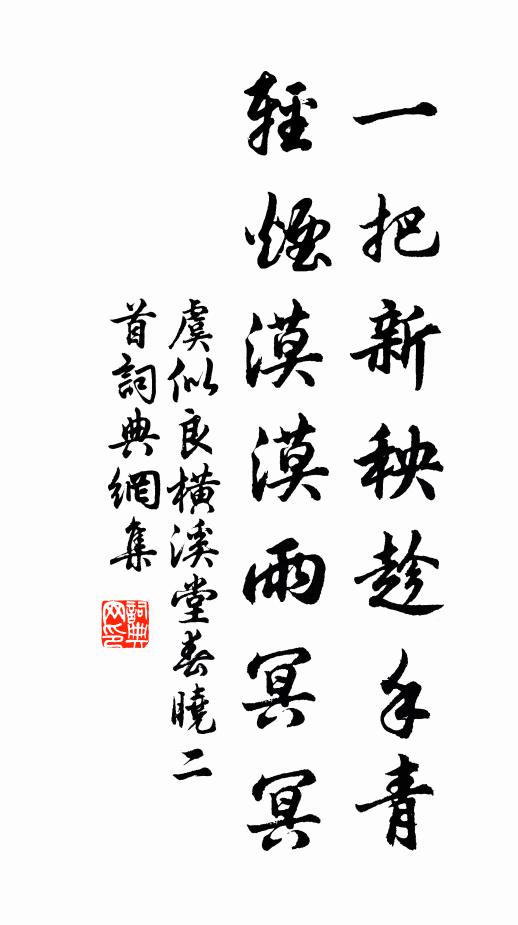 一把新秧趁手青
輕煙漠漠雨冥冥
虞似良橫溪堂春曉二
首詞典網集
詞典网印